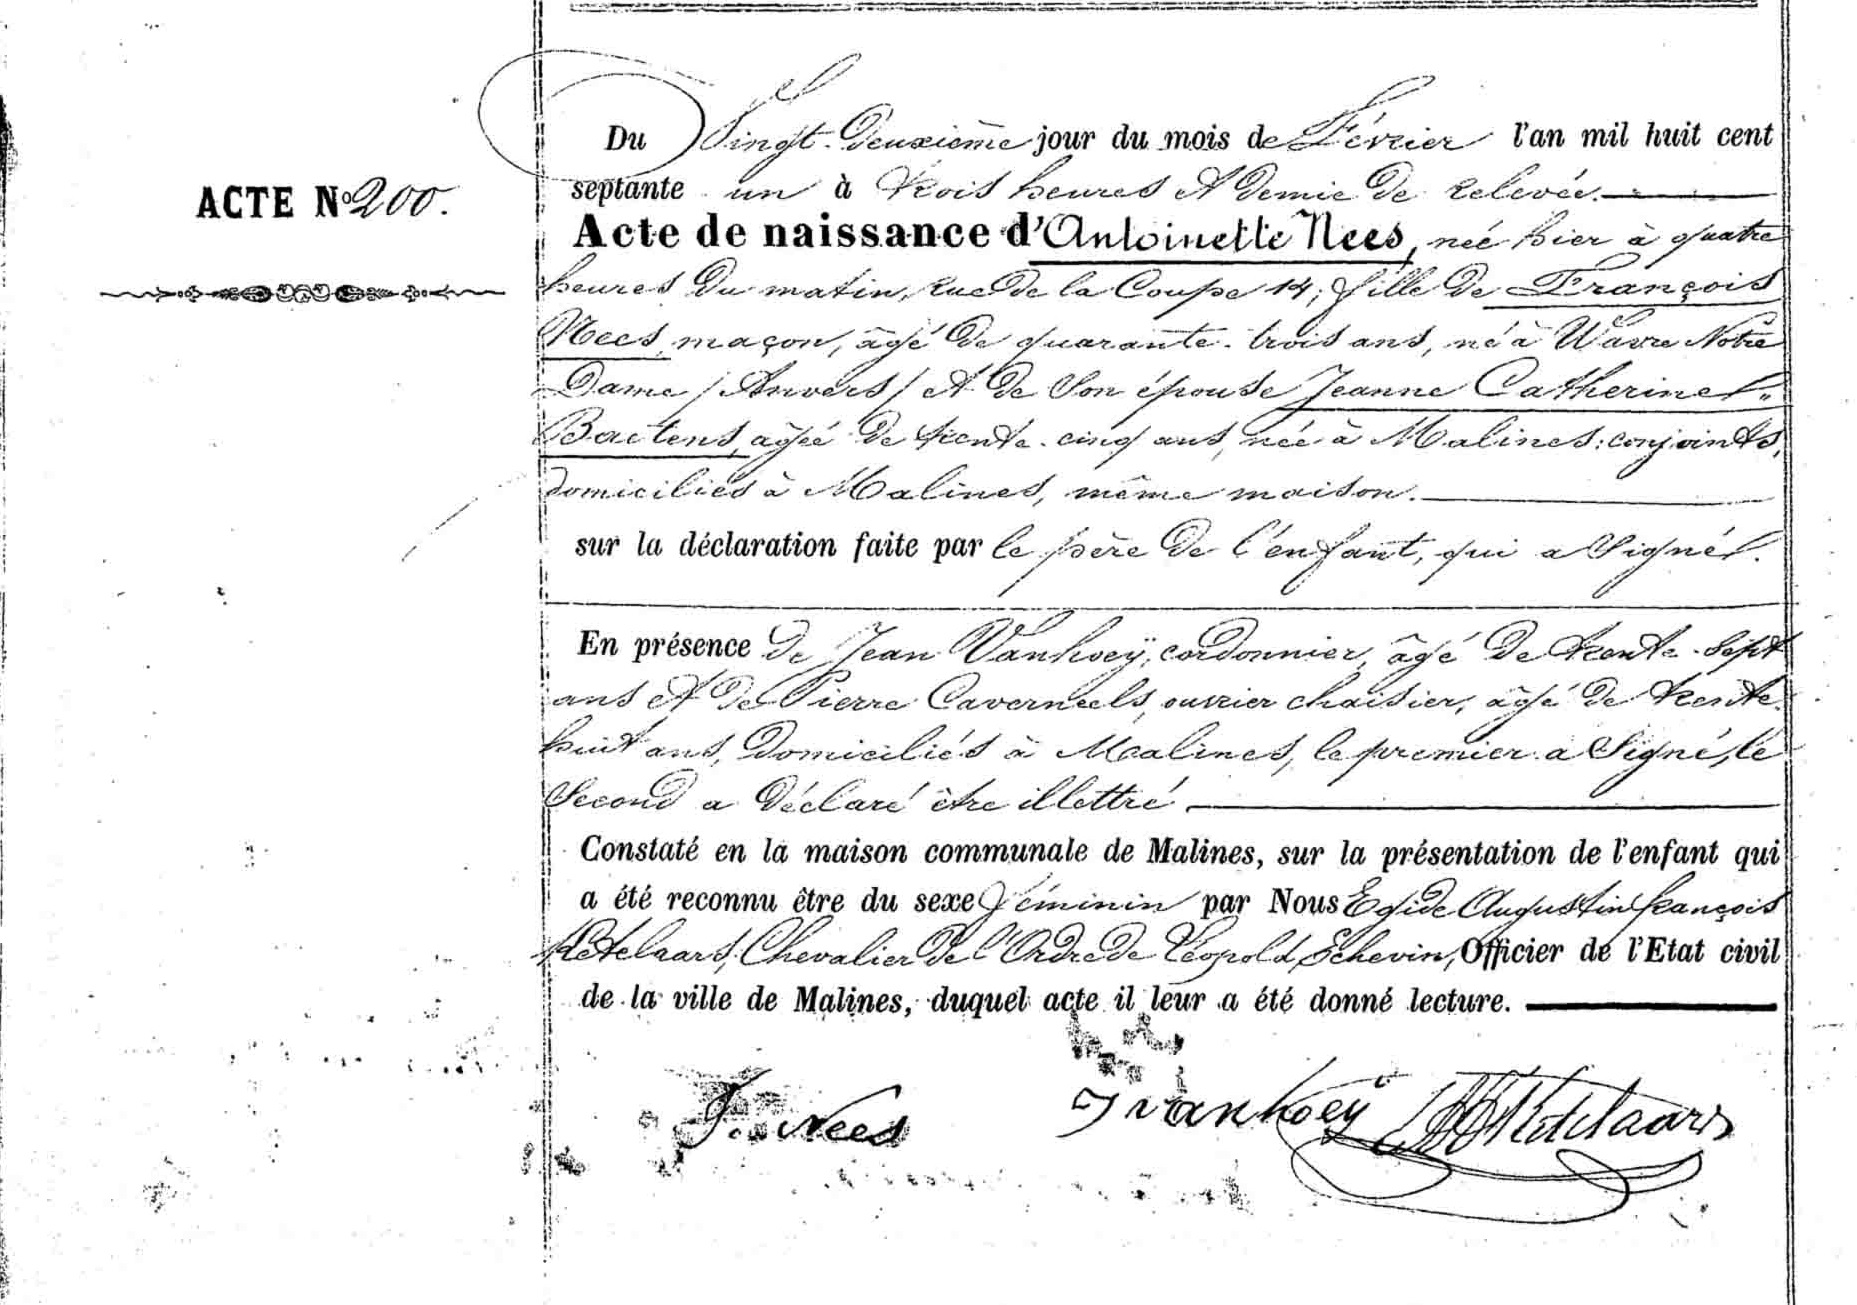 Du Vingt-deuxième jour du mois de Février l'an mil huit cent
ACTE No 200.
septante un à trois heures et demie de relevée.
Acte de naissance d'Antoinette Nees, née hier à quatre
heures du matin, rue de la Coupe 14, fille de François
Nees, maçon, âgé de quarante-trois ans, né à Wavre Notre
Dame / Anvers / et de son épouse Jeanne Catherine
Baetens, âgée de trente-cinq ans, née à Malines; conjoints,
domiciliés à Malines, même maison.
sur la déclaration faite par le père de l'enfant, qui a signé.
En présence de Jean Vanhoeÿ, cordonnier, âgé de trente-sept
ans et de Pierre Caverneels, ouvrier chaisier, âgé de trente
huit ans, domiciliés à Malines, le premier a signé, le
second a déclaré être illettré
Constaté en la maison communale de Malines, sur la présentation de l'enfant qui
a été reconnu être du sexe féminin par Nous Egide Augustin François
Ketelaars, Chevalier de l'Ordre de Léopold, Echevin, Officier de l'Etat civil
de la ville de Malines, duquel acte il leur a été donné lecture.
F. Nees J vanhoeÿ Ketelaars